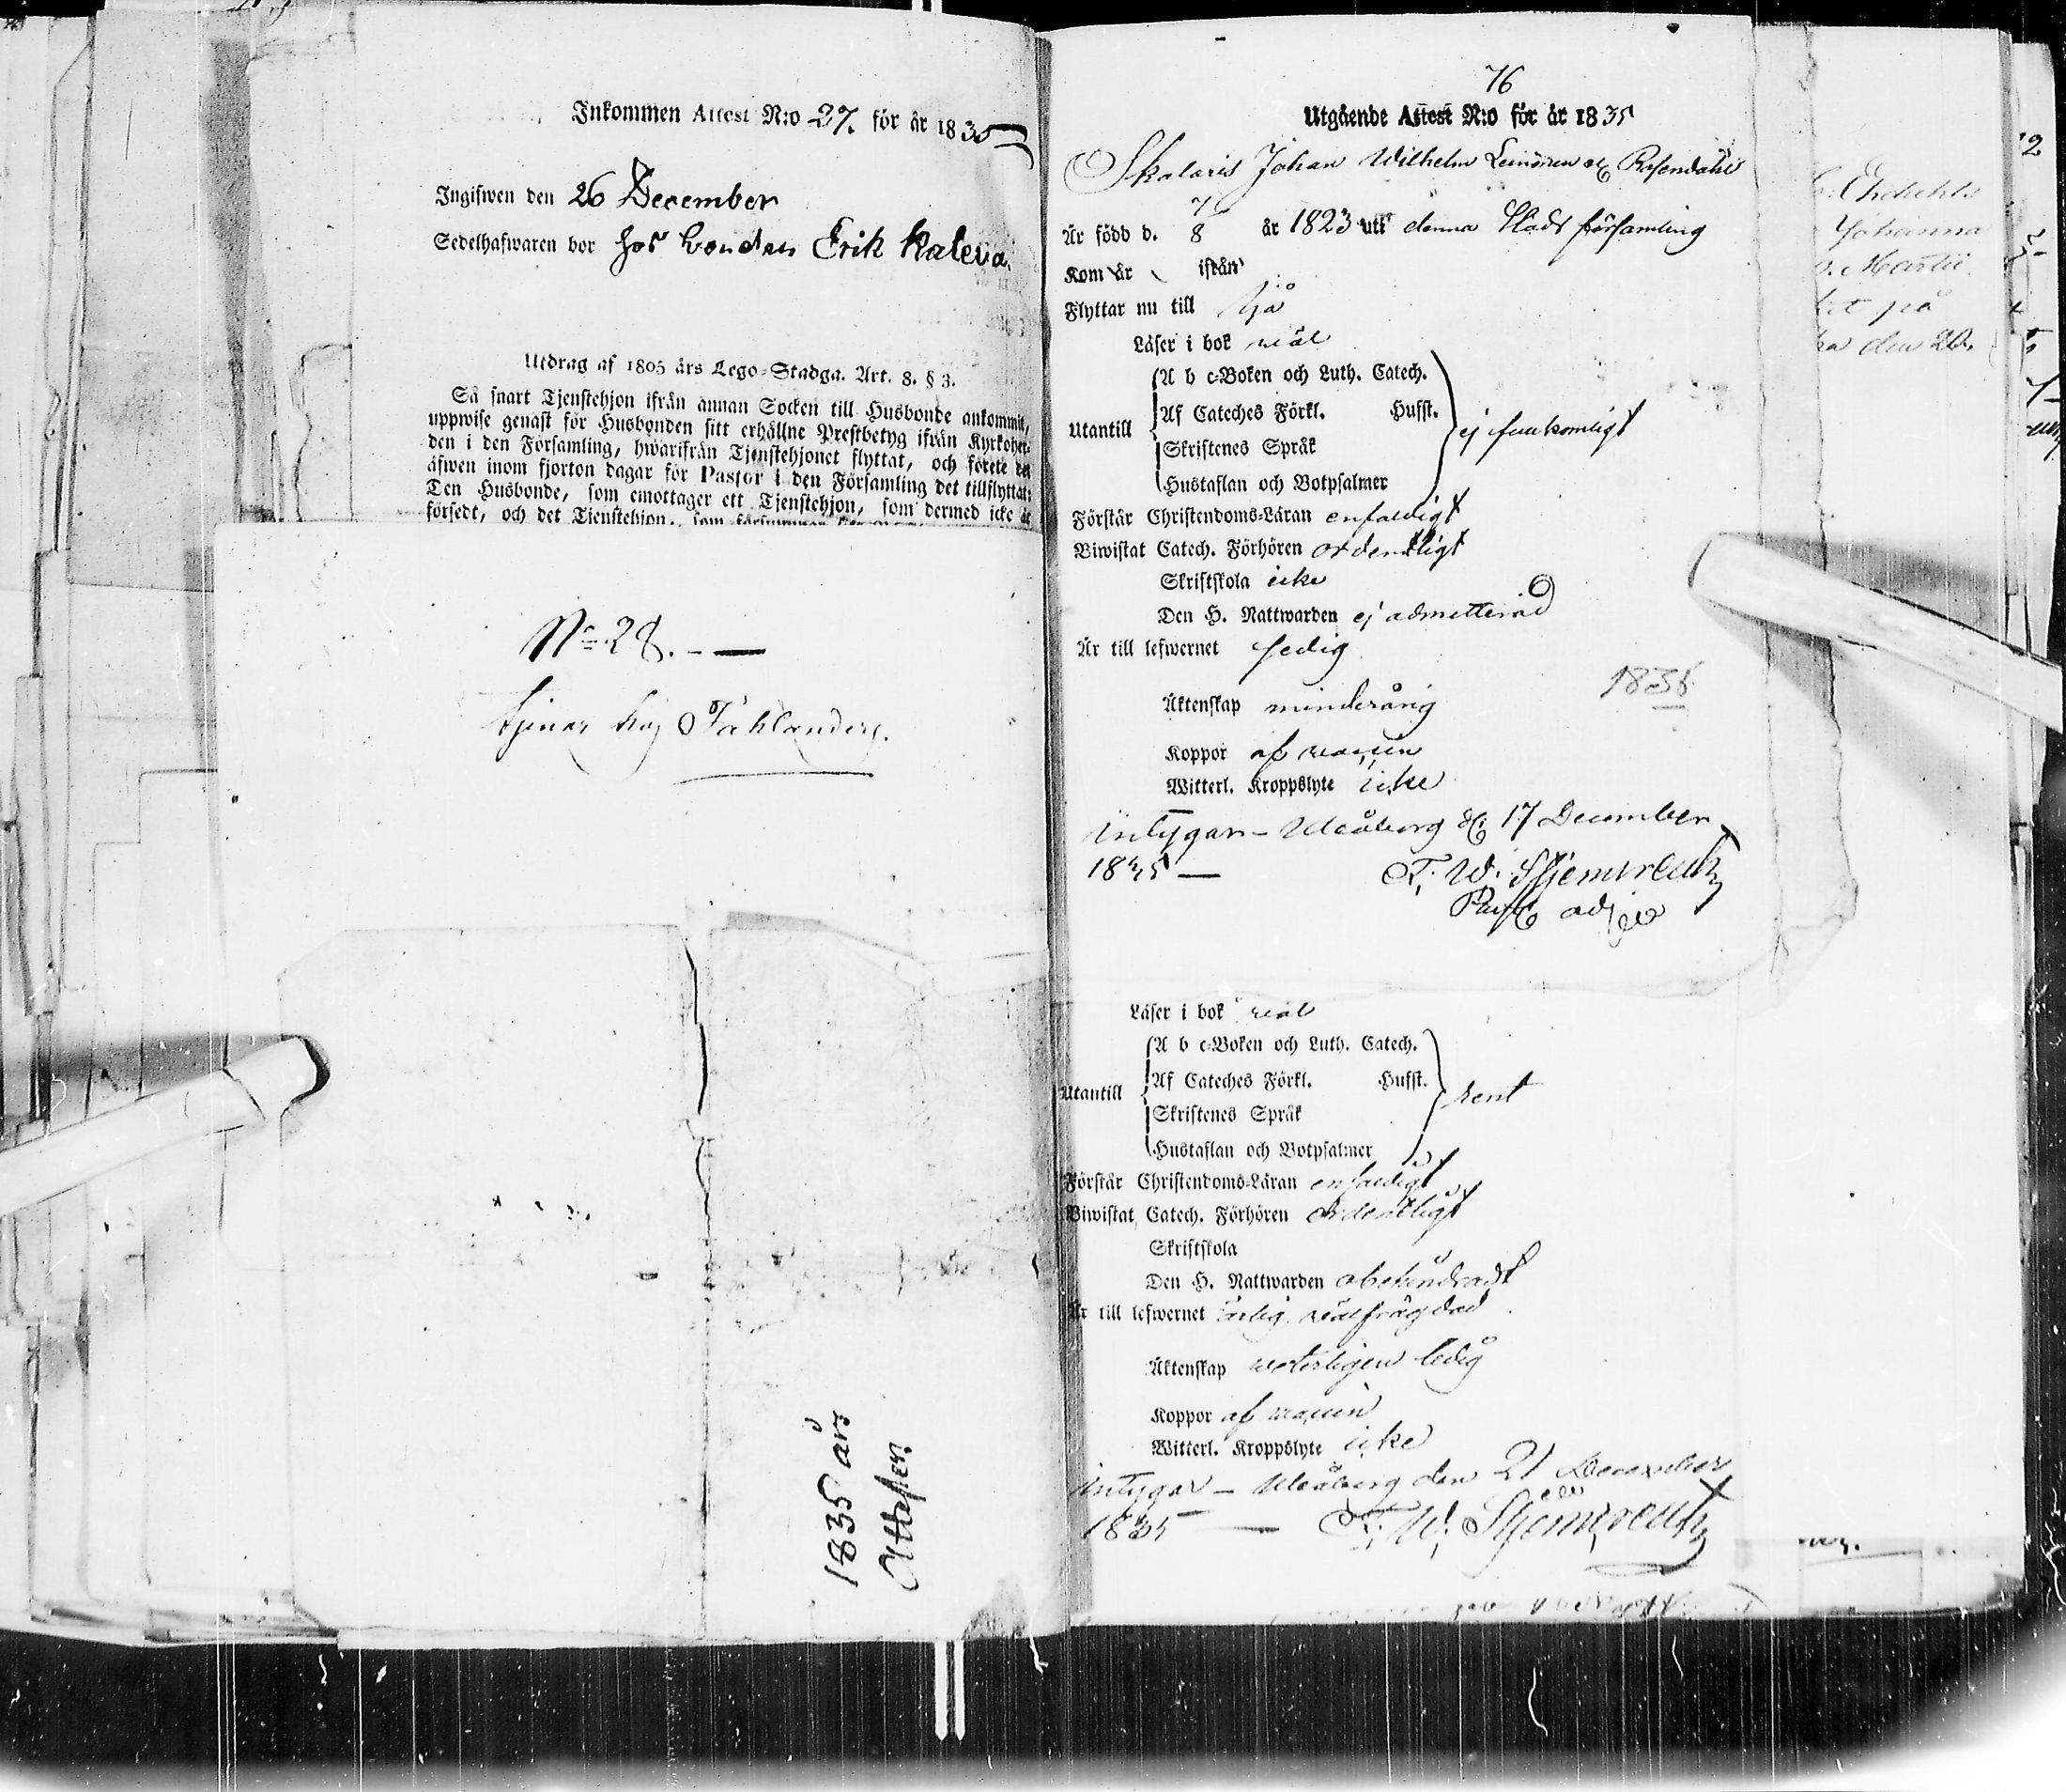 Inkommen Attest N:o 27. för år 1835
Ingifwen den 26 December
Sedelhafwaren bor hos bonden Erik Kaleva.
Utdrag af 1805 års Lego-Stadga. Art. 8. § 3.
Så snart Tjenstehjon ifrån annan Socken till Husbonde ankommit,
uppwise genast för Husbonden sitt erhållne Prestbetyg ifrån Kyrkoher-
den i den Församling, hwarifrån Tjenstehjonet flyttat, och förete det
äfwen inom fjorton dagar för Pastor i den Församling det tillflyttat:
Den Husbonde, som emottager ett Tjenstehjon, som dermed icke är
försedt, och det Tjenstehjon, som försummar
No 28. - —
tjenar hos
1835 års
Attester.
76
Utgående Attest N:o för år 1835
Johan Wilhelm Rosendahl
Är född d. 7/8 år 1823 uti denna Stads församling
Kom år ifrån
Flyttar nu till Ijo
Läser i bok wäl
Utantill
A b c-Boken och Luth. Catech.
Af Cateches Förkl. Hufst.
Skriftenes Språk
Hustaflan och Botpsalmer
ej fullkomligt
Förstår Christendoms-Läran enfaldigt
Biwistat Catech. Förhören ordentligt
Skriftskola icke
Den H. Nattwarden ej admitterad
Är till lefwernet sedig
1835
Äktenskap minderårig
Koppor af vaccin
Witterl. Kroppslyte icke
intygar - Uleåborg d. 17 December
1835 —
F. W.
Past. adj.
Läser i bok wäl
Utantill
A b c-Boken och Luth. Catech.
Af Cateches Förkl. Hufst.
Skriftenes Språk
Hustaflan och Botpsalmer
rent
Förstår Christendoms-Läran enfaldigt
Biwistat Catech. Förhören ordentligt
Skriftskola
Den H. Nattwarden obehindradt
Är till lefwernet ärlig, wälfrägdad
Äktenskap weterligen ledig
Koppor af vaccin
Witterl. Kroppslyte icke
intygar - Uleåborg den 21 December
1835 — F. W.
Johanna
Martii
på
den 20.